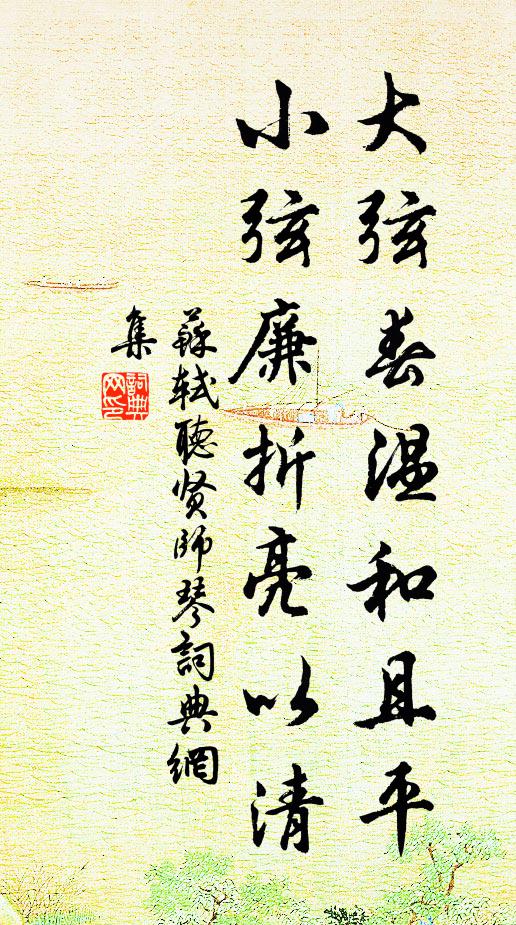 大弦春温和且平
小弦廉折亮以清
蘇軾聽贤师琴詞典網
集
詞典
网印